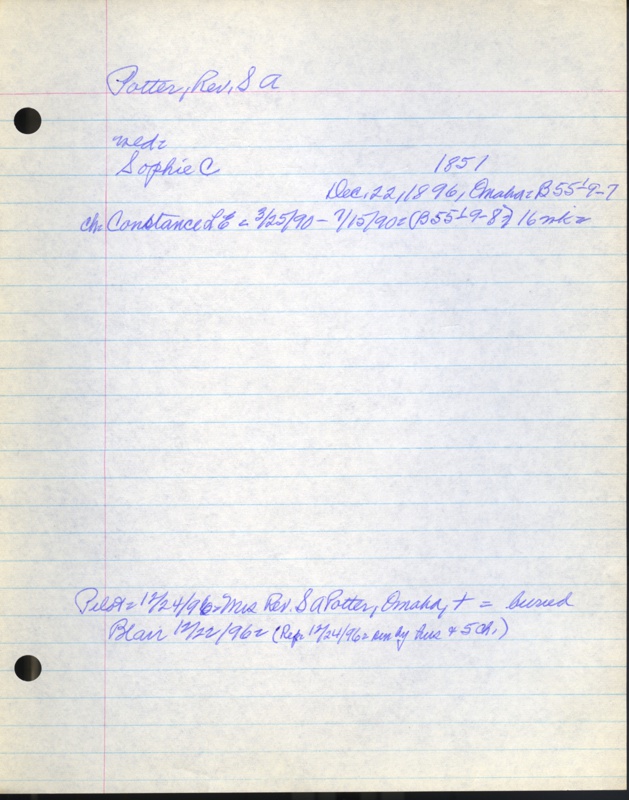 Potter, Rev. S A
med=
Sophie C 1851
Dec. 22, 1896, Omaha= B55-L9-7
ch= Constance L E = 3/25/90 - 7/15/90= (B55-L9-8) 16 wk=
Pilot= 12/24/96= Mrs Rev. S A Potter, Omaha, + = buried
Blair 12/22/96= (Rep= 12/24/96= sm by hus & 5 ch.)